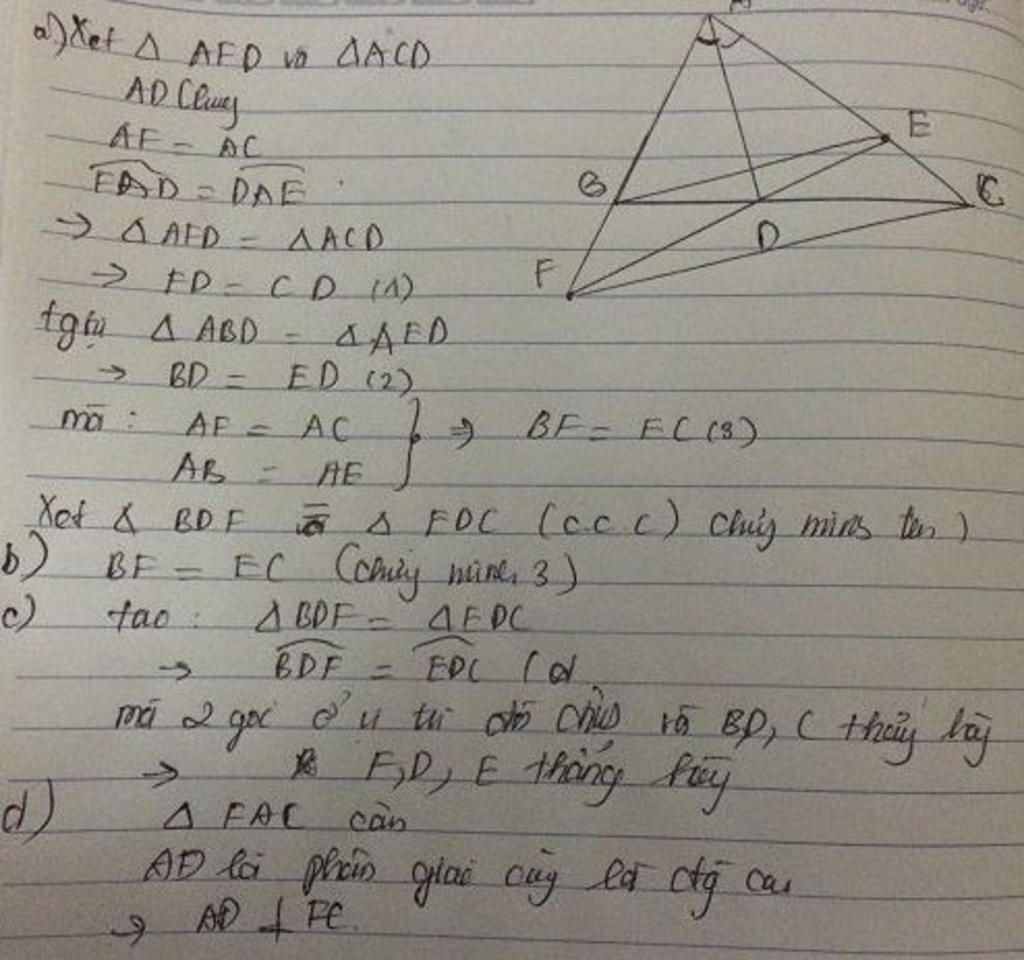 a) Xet Δ AFD và ΔACD
AD Chung
AF = AC
FAD = DAE
→ Δ AFD = ΔACD
→ FD = CD (1)
tg tự Δ ABD = ΔAED
→ BD = ED (2)
mà : AF = AC
AB = AE
} ⇒ BF = EC (3)
Xet Δ BDF Δ EDC (c.c.c) chứng minh trên )
b) BF = EC (chứng minh 3)
c) tao : ΔBDF = ΔEDC
→ BDF = EDC
mà 2 góc ở vị trí đối và BD, C thẳng hàng
→ F, D, E thẳng hàng
d) Δ FAC cân
AD là phân giác cũng là đg cao
→ AD ⊥ FC.
E
B
C
D
F